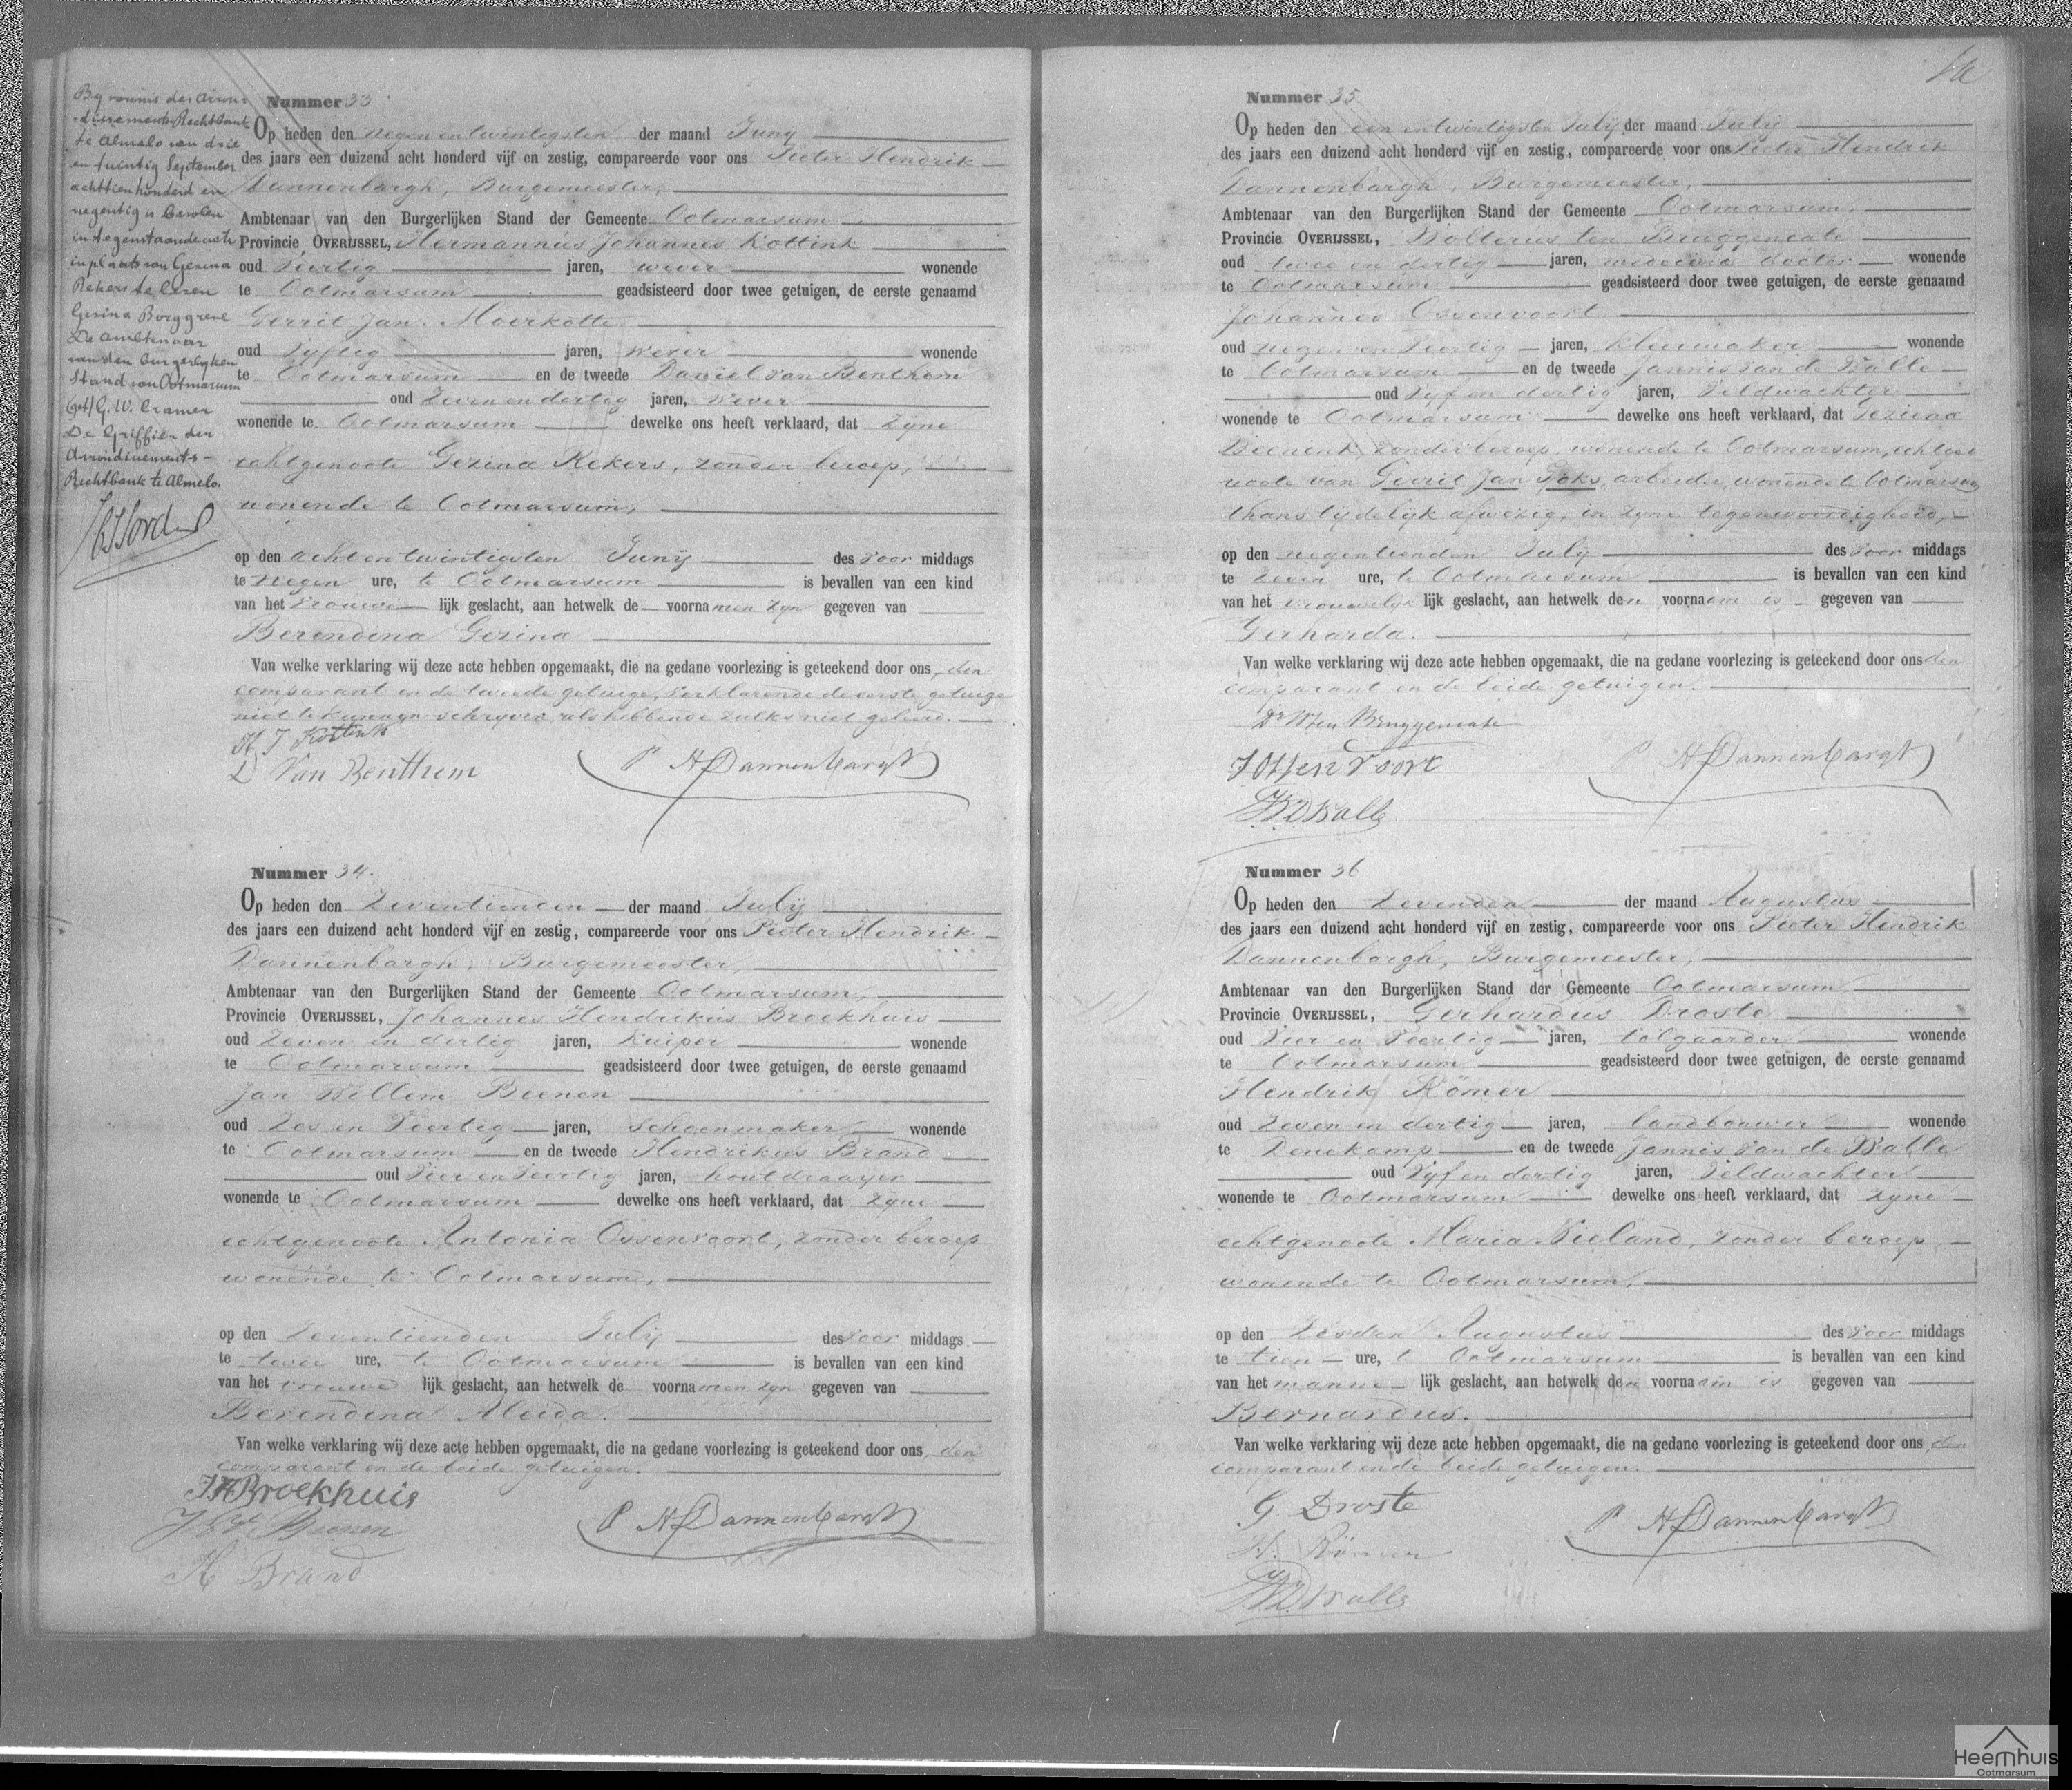 By vonnis der Arron-
dissements Rechtbank
te Almelo van drie
en twintig September
achttienhonderd en
negentig is bevolen
in tegenstaande acte
in plaats van Gesina
Rekers te lezen
Gesina Borggreve
De Ambtenaar
van den burgerlyken
Stand van Ootmarsum
(get) G. W. Cramer
De Griffier der
Arrondissements-
Rechtbank te Almelo.
Nummer 33
Op heden den negen en twintigsten der maand Juny
des jaars een duizend acht honderd vijf en zestig, compareerde voor ons Pieter Hendrik
Dannenbargh, Burgemeester,
Ambtenaar van den Burgerlijken Stand der Gemeente Ootmarsum
Provincie OVERIJSSEL, Hermannus Johannes Kottink
oud Veertig jaren, wever wonende
te Ootmarsum geadsisteerd door twee getuigen, de eerste genaamd
Gerrit Jan Moerkotte
oud Vyftig jaren, Wever wonende
te Ootmarsum en de tweede Daniel van Benthem
oud Zeven en dertig jaren, Wever
wonende te Ootmarsum dewelke ons heeft verklaard, dat Zyne
echtgenoote Gezina Rekers, zonder beroep,
wonende te Ootmarsum,
op den acht en twintigsten Junÿ des voor middags
te negen ure, te Ootmarsum is bevallen van een kind
van het vrouwe lijk geslacht, aan hetwelk de voornamen zyn gegeven van
Berendina Gezina
Van welke verklaring wij deze acte hebben opgemaakt, die na gedane voorlezing is geteekend door ons, den
comparant en de tweede getuige, verklarende de eerste getuige
niet te kunnen schryven als hebbende zulks niet geleerd.
H J Kottink
D Van Benthem
P H Dannenbargh
Nummer 34.
Op heden den Zeventienden der maand Julÿ
des jaars een duizend acht honderd vijf en zestig, compareerde voor ons Pieter Hendrik
Dannenbargh, Burgemeester,
Ambtenaar van den Burgerlijken Stand der Gemeente Ootmarsum,
Provincie OVERIJSSEL, Johannes Hendrikus Broekhuis
oud Zeven en dertig jaren, Kuiper wonende
te Ootmarsum geadsisteerd door twee getuigen, de eerste genaamd
Jan Willem Beenen
oud Zes en Veertig jaren, Schoenmaker wonende
te Ootmarsum en de tweede Hendrikus Brand
oud Vier en Veertig jaren, houtdraayer
wonende te Ootmarsum dewelke ons heeft verklaard, dat Zyne
echtgenoote Antonia Ossenvoort, zonder beroep
wonende te Ootmarsum,
op den Zeventienden Julÿ des voor middags
te twee ure, te Ootmarsum is bevallen van een kind
van het vrouwe lijk geslacht, aan hetwelk de voornamen zyn gegeven van
Berendina Aleida.
Van welke verklaring wij deze acte hebben opgemaakt, die na gedane voorlezing is geteekend door ons, den
comparant en de beide getuigen.
J H Broekhuis
J W Beenen
H Brand
P H Dannenbargh
Nummer 35.
Op heden den een en twintigsten Julÿ der maand Julÿ
des jaars een duizend acht honderd vijf en zestig, compareerde voor ons Pieter Hendrik
Dannenbargh, Burgemeester,
Ambtenaar van den Burgerlijken Stand der Gemeente Ootmarsum,
Provincie OVERIJSSEL, Wolterus ten Bruggencate
oud twee en dertig jaren, medecine doctor wonende
te Ootmarsum geadsisteerd door twee getuigen, de eerste genaamd
Johannes Ossenvoort
oud negen en Veertig jaren, Kleermaker wonende
te Ootmarsum en de tweede Jannis van de Walle
oud Vyf en dertig jaren, Veldwachter
wonende te Ootmarsum dewelke ons heeft verklaard, dat Gezina
zonder beroep, wonende te Ootmarsum, echtge-
noote van Gerrit Jan Foks, arbeider, wonende te Ootmarsum
thans tydelyk afwezig, in zyne tegenwoordigheid,
op den negentienden Julÿ des voor middags
te Zeven ure, te Ootmarsum is bevallen van een kind
van het vrouwelyk lijk geslacht, aan hetwelk den voornaam is gegeven van
Gerharda.
Van welke verklaring wij deze acte hebben opgemaakt, die na gedane voorlezing is geteekend door ons den
comparant en de beide getuigen.
Dr W ten Bruggencate
J Ossenvoort
J V D Walle
P H Dannenbargh
Nummer 36
Op heden den Zevenden der maand Augustus
des jaars een duizend acht honderd vijf en zestig, compareerde voor ons Pieter Hendrik
Dannenbargh, Burgemeester,
Ambtenaar van den Burgerlijken Stand der Gemeente Ootmarsum
Provincie OVERIJSSEL, Gerhardus Droste
oud Vier en Veertig jaren, tolgaarder wonende
te Ootmarsum geadsisteerd door twee getuigen, de eerste genaamd
Hendrik Römer
oud Zeven en dertig jaren, landbouwer wonende
te Denekamp en de tweede Jannis van de Walle
oud Vyf en dertig jaren, Veldwachter
wonende te Ootmarsum dewelke ons heeft verklaard, dat zyne
echtgenoote Maria Vieland, zonder beroep,
wonende te Ootmarsum,
op den Zesden Augustus des voor middags
te tien ure, te Ootmarsum is bevallen van een kind
van het manne lijk geslacht, aan hetwelk den voornaam is gegeven van
Bernardus.
Van welke verklaring wij deze acte hebben opgemaakt, die na gedane voorlezing is geteekend door ons, den
comparant en de beide getuigen.
G. Droste
H. Römer
J V D Walle
P H Dannenbargh
Heemhuis
Ootmarsum